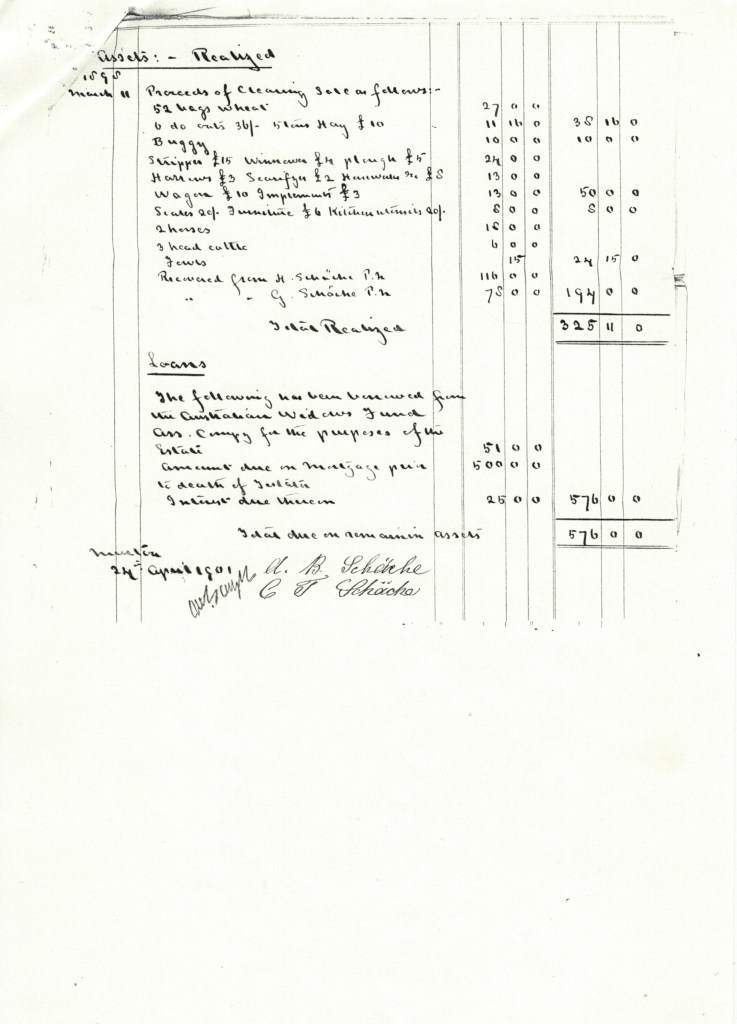 Assets: - Realized
1898
March 11 Proceeds of Clearing Sale as follows:-
52 bags wheat 27 0 0
6 do oats 36/- 5 tons Hay £10 11 16 0 38 16 0
Buggy 10 0 0 10 0 0
Stripper £15 Winnower £4 plough £5 24 0 0
Harrows £3 Scarifyer £2 &c £8 13 0 0
Wagon £10 Implements £3 13 0 0 50 0 0
Scales 20/- Furniture £6 Kitchen utensils 20/- 8 0 0 8 0 0
2 horses 18 0 0
3 head cattle 6 0 0
Fowls 15 24 15 0
Recovered from H. Schäche P.N 116 0 0
" " G. Schäche P.N 78 0 0 194 0 0
Total Realized 325 11 0
Loans
The following has been borrowed from
the Australian Widows Fund
Ass. Compy for the purposes of the
Estate 51 0 0
Amount due on Mortgage prior 500 0 0
to death of Testator
Interest due thereon 25 0 0 576 0 0
Total due on remainin assets 576 0 0
24th April 1901 A. B. Schäche
C F Schäche